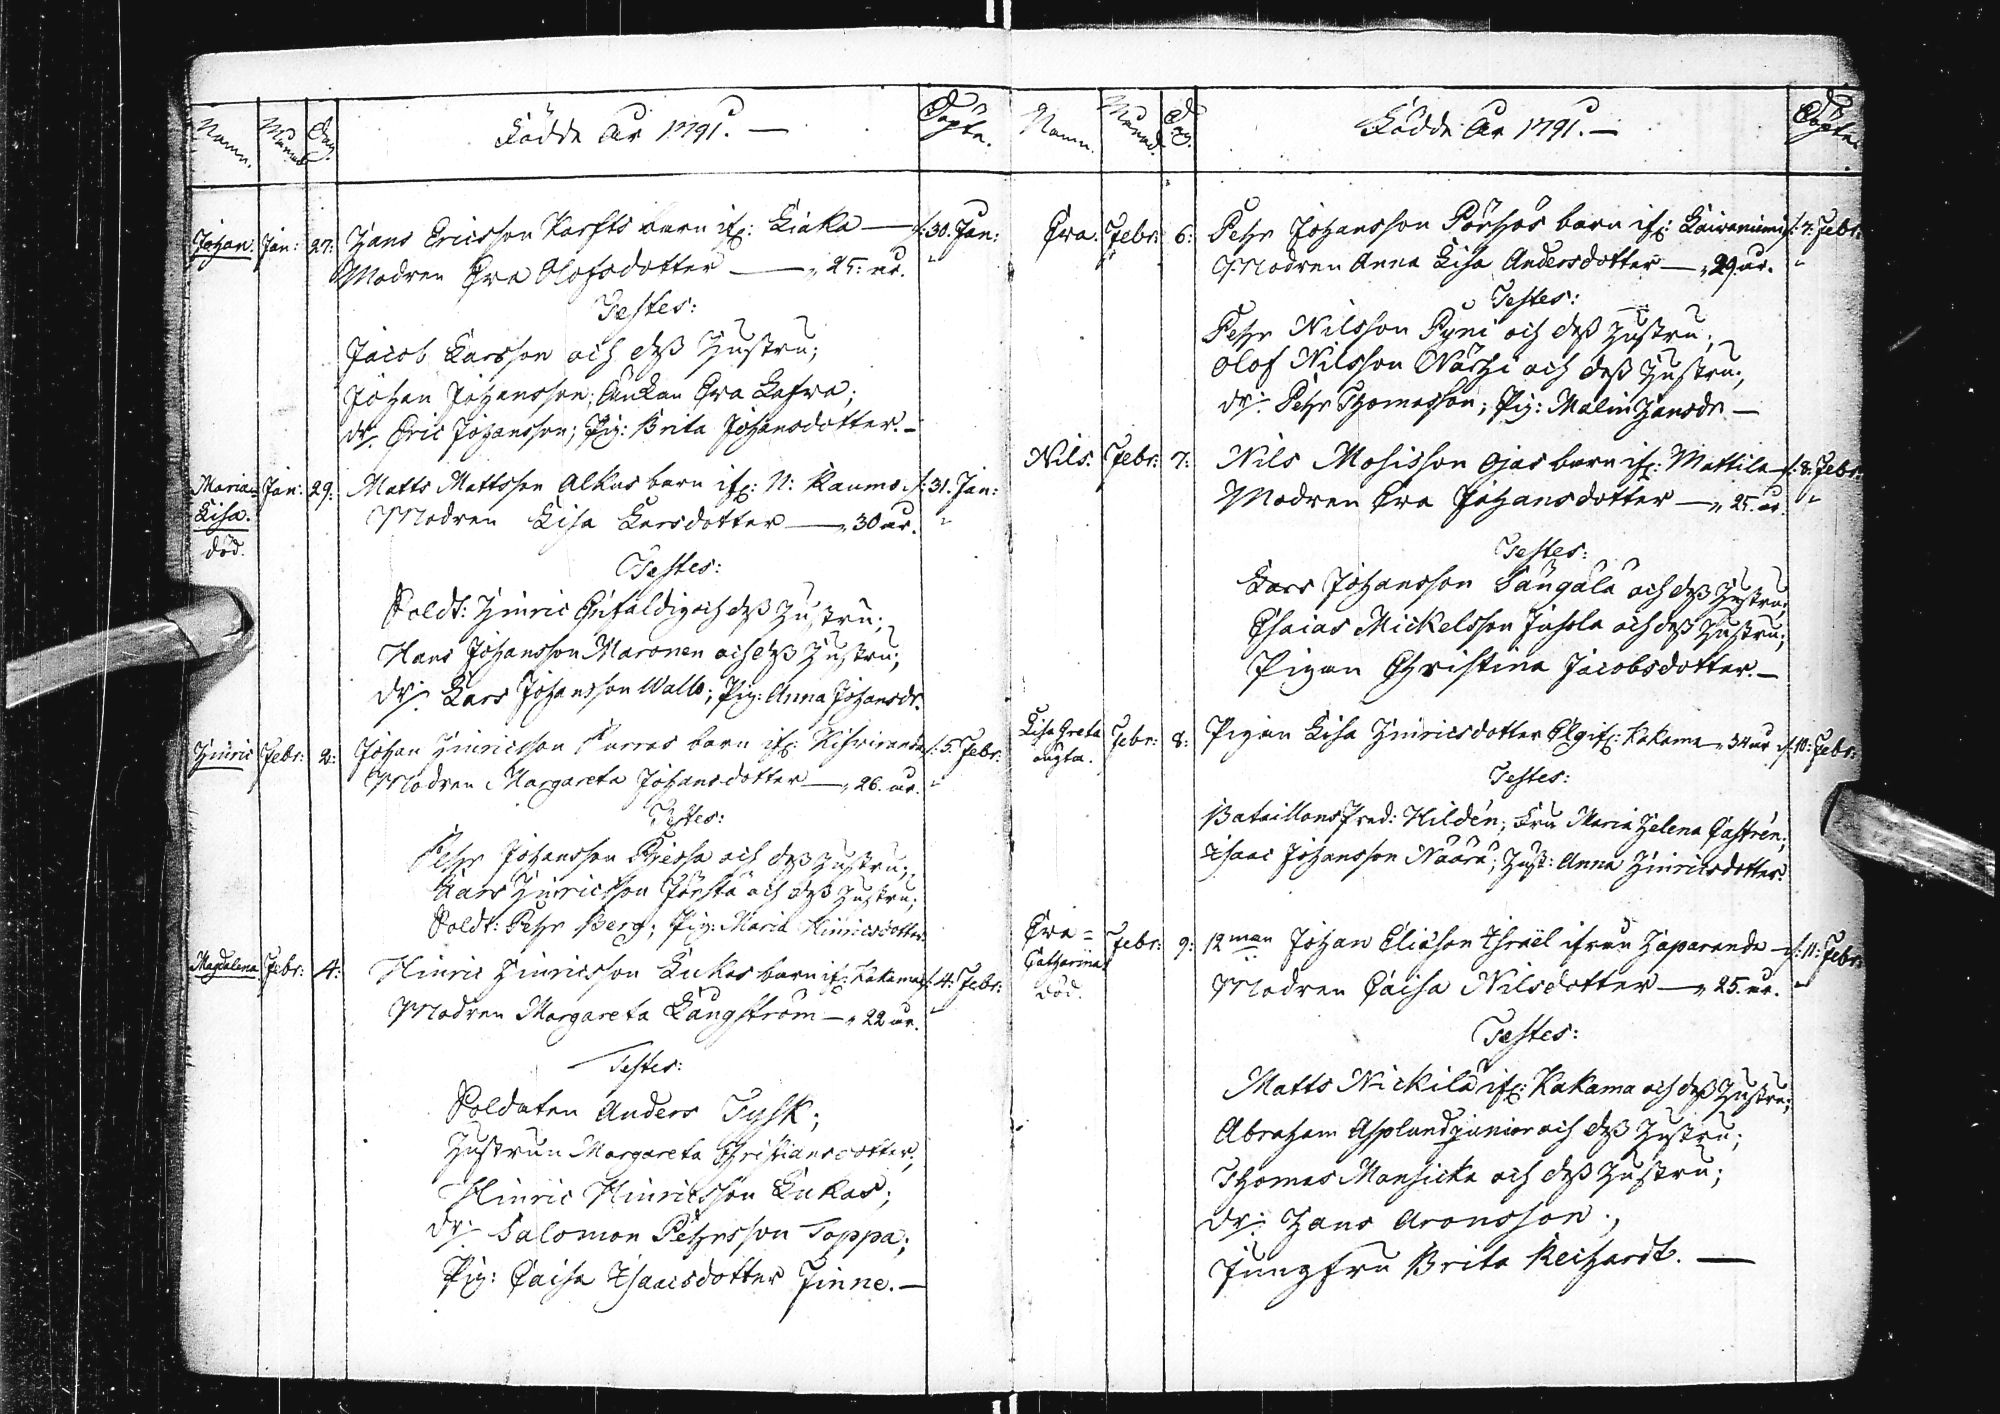 Namn. Månad Dag Födde År 1791. — Döpte.
Johan. Jan: 27: Hans Ericsson Korfts barn if: Liaka — /: 30. Jan:
Modren Eva Olofsdotter — „ 25: år. „
Testes:
Jacob Larsson och deß Hustru;
Johan Johansson; Änkan Eva Lafwa;
dr: Eric Johansson; Pig: Brita Johansdotter. —
Maria= Jan: 29: Matts Mattsson Alkus barn if: N: Raumo /: 31. Jan:
Lisa. Modren Lisa Larsdotter — „ 30 år. „
död.
Testes:
Soldt: Hinric Enfaldig och deß Hustru;
Hans Johansson Maronen och deß Hustru;
dr: Lars Johansson Wallo; Pig: Anna Johansdr.
Hinric Febr: 2: Johan Hinricsson Furras barn if: /: 5. Febr:
Modren Margareta Johansdotter — „ 26. år. „
Testes:
Pehr Johansson Kiessa och deß Hustru;
Lars Hinricsson Jönstä och deß Hustru;
Soldt: Pehr Berg; Pig: Maria Hinricsdotter.
Magdalena Febr: 4: Hinric Hinricsson Lukas barn if: Kakama /: 4. Febr:
Modren Margareta Långström — „ 22 år. „
Testes:
Soldaten Anders Tysk;
Hustrun Margareta Christiansdotter;
Hinric Hinricsson Lukas;
dr: Salomon Pehrsson Toppa;
Pig: Caisa Isaacsdotter Finne. —
Namn. Månad. Dag. Födde År 1791. — Döpte.
Eva. Febr: 6: Pehr Johansson Pörhös barn if: Kairaniemi /: 7. Febr:
Modren Anna Lisa Andersdotter — „ 29 år. „
Testes:
Pehr Nilsson Pyni och deß Hustru;
Olof Nilsson Närhi och deß Hustru;
dr: Pehr Thomasson; Pig: Malin Hansdr —
Nils. Febr: 7: Nils Mosisson Ojas barn if: Mattila /: 8. Febr:
Modren Eva Johansdotter — „ 25. år. „
Testes:
Lars Johansson Sangala och deß Hustru;
Esaias Mickelsson Juhola och deß Hustru;
Pigan Christina Jacobsdotter. —
Lisa Greta Febr: 8: Pigan Lisa Hinricsdotter Elg if: Kakama „ 34 år /: 10: Febr:
oägta.
Testes:
Bataillons Pred: Hildén; Fru Maria Helena Castrén;
Isaac Johansson Naara; Hust: Anna Hinricsdotter.
Eva= Febr: 9: 12 man Johan Eliæson Israël ifrån Haparanda — /: 11: Febr:
Catharina Modren Caisa Nilsdotter — „ 25. år. „
död.
Testes:
Matts Nickilä if: Kakama och deß Hustru;
Abraham Asplund junior och deß Hustru;
Thomas Mansicka och deß Hustru;
dr: Hans Aronsson;
Jungfru Brita Reichardt. —